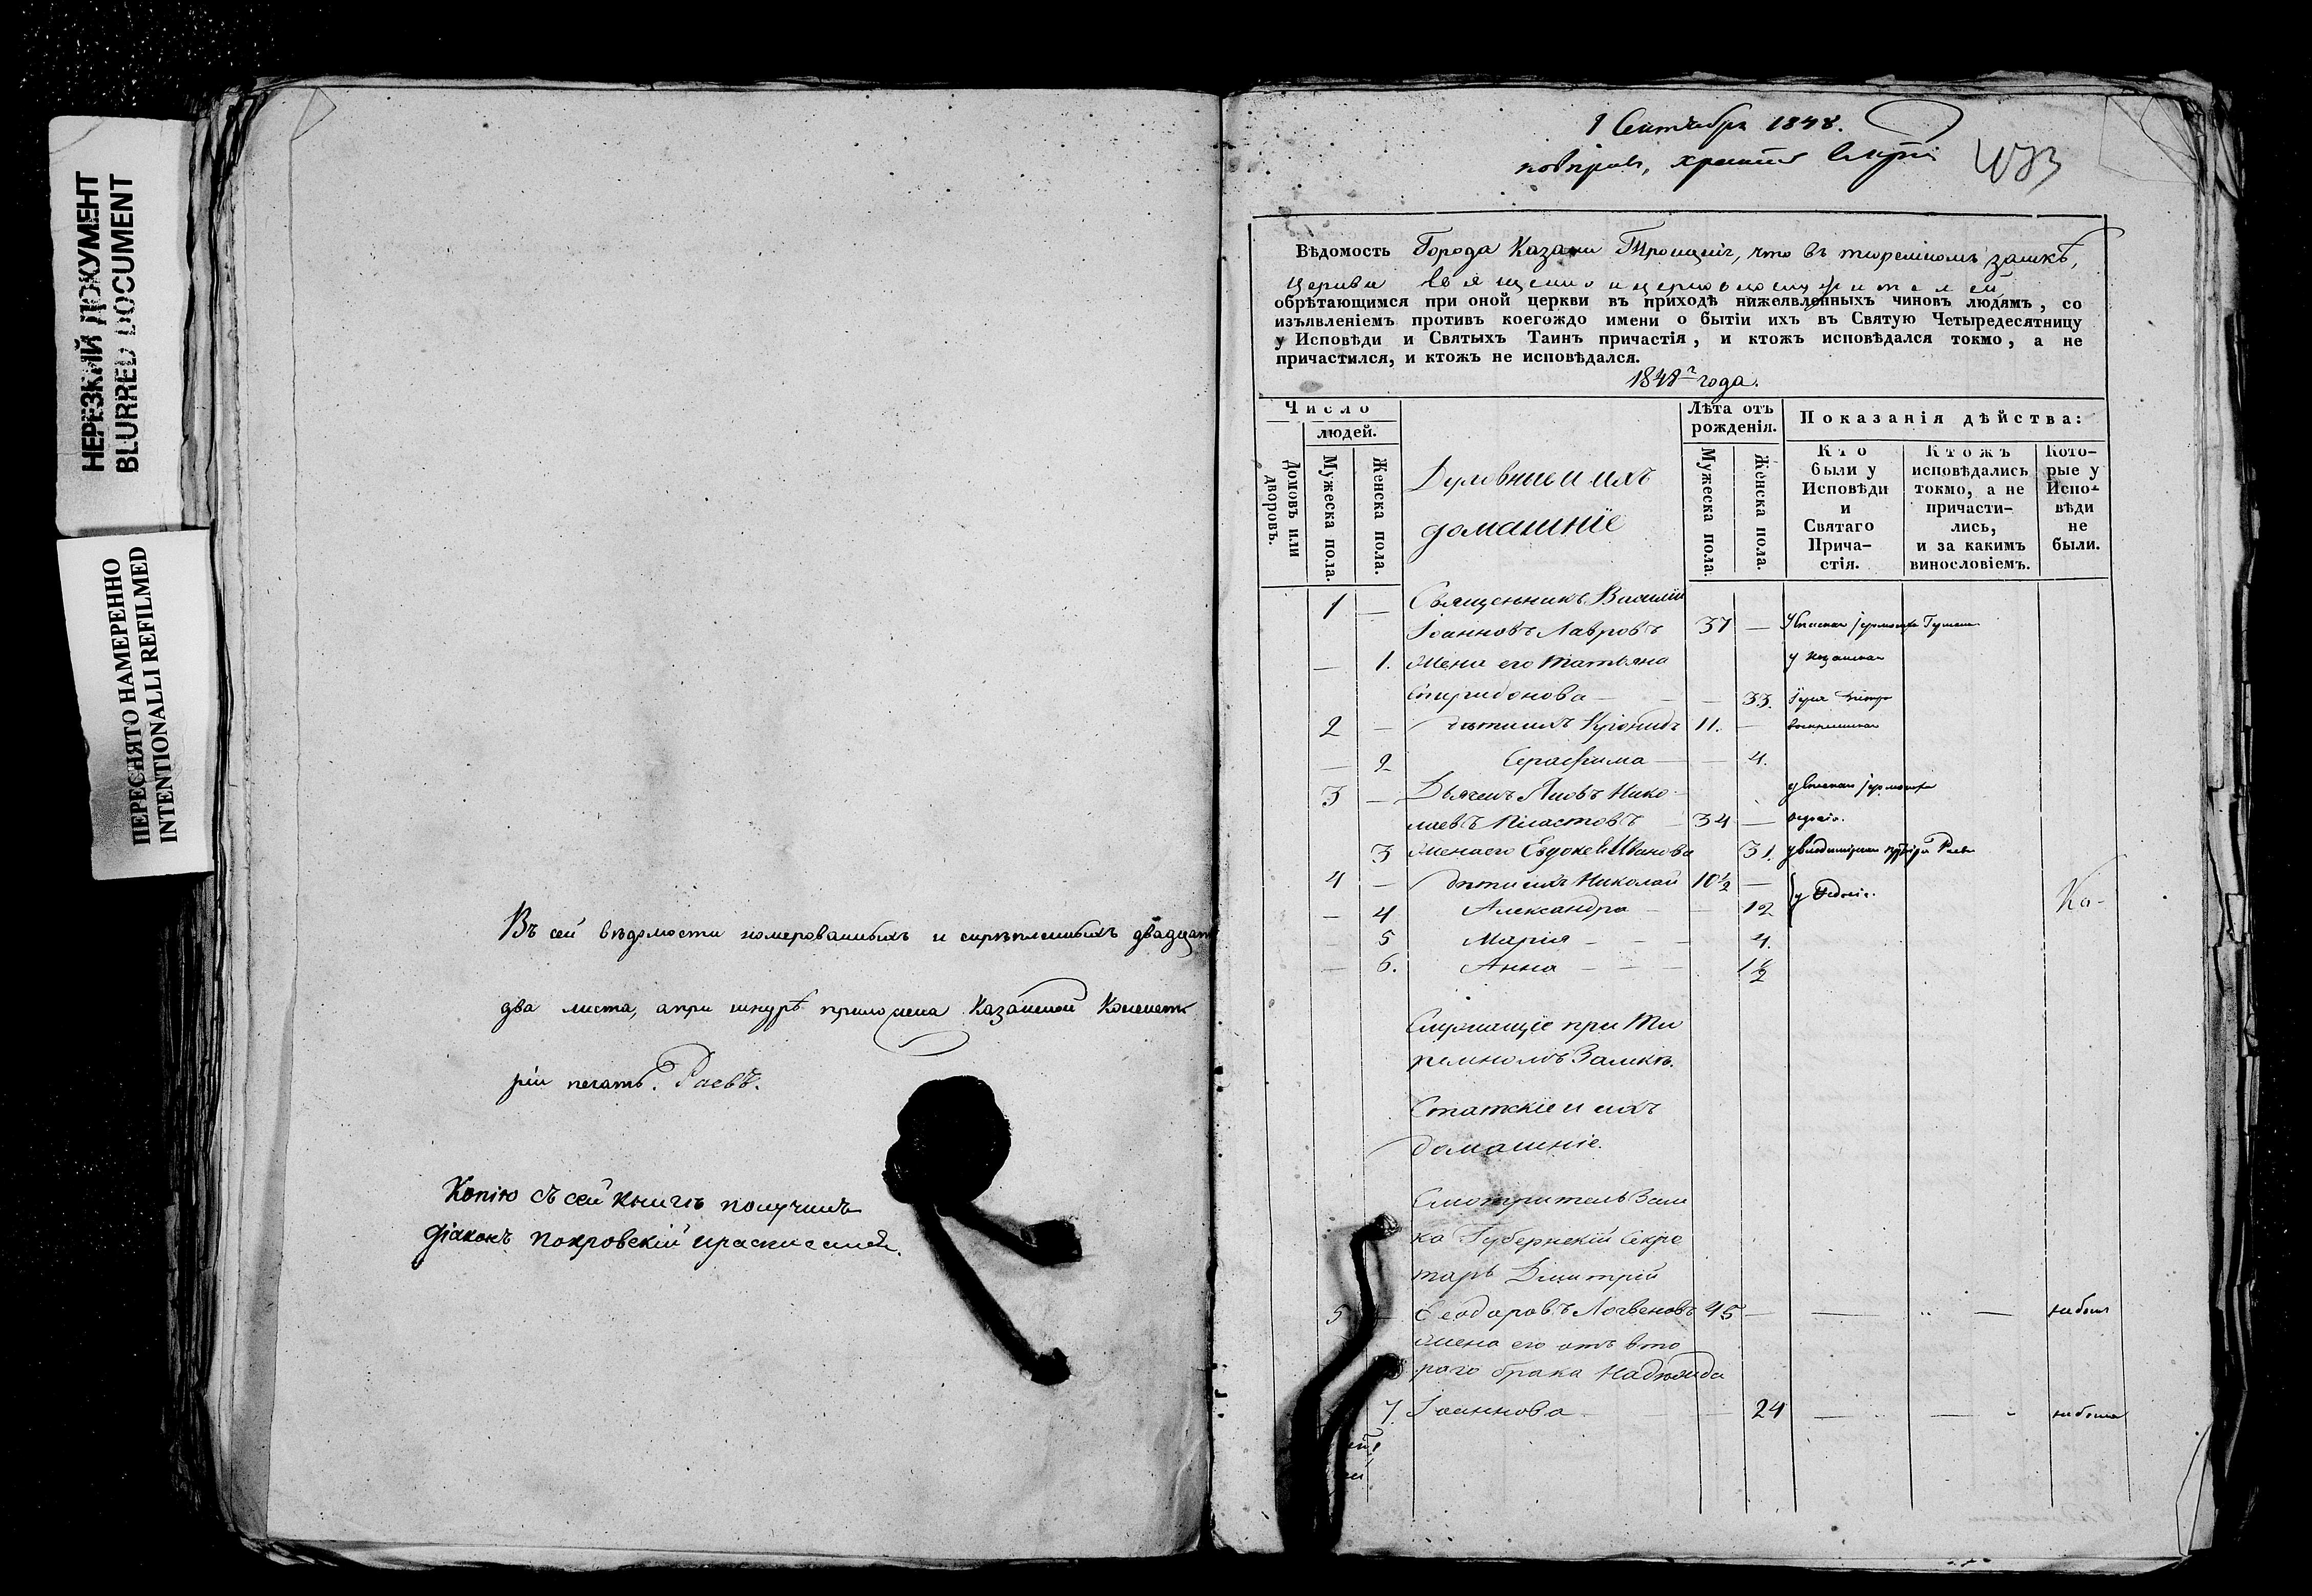 НЕРЕЗКИЙ ДОКУМЕНТ
BLURRED DOCUMENT
ПЕРЕСНЯТО НАМЕРЕННО
INTENTIONALLI REFILMED
Въ сей вѣдомости номерованныхъ и скрѣпленныхъ двадцать
два листа, а при шнурѣ приложена Казанской Консисто
ріи печать. Раевъ.
Копію съ сей книги получилъ
діаконъ Покровскій
1 Сентября 1848.
Вѣдомость Города Казани Троицкія, что въ тюремномъ замкѣ,
церкви
обрѣтающимся при оной церкви въ приходѣ нижеявленныхъ чиновъ людямъ, со
изъявленіемъ противъ коегождо имени о бытіи ихъ въ Святую Четыредесятницу
у Исповѣди и Святыхъ Таинъ причастія, и ктожъ исповѣдался токмо, а не
причастился, и ктожъ не исповѣдался.
1848 года.
Число
людей.
Домовъ или дворовъ.
Мужеска пола.
Женска пола.
Духовные и ихъ
домашніе
Лѣта отъ
рожденія.
Мужеска пола.
Женска пола.
Показанія дѣйства:
Кто
были у
Исповѣди
и
Святаго
Прича-
стія.
Ктожъ
исповѣдались
токмо, а не
причасти-
лись,
и за какимъ
винословіемъ.
Кото-
рые у
Испо-
вѣди
не
были.
1 — Священникъ Василій
Іоанновъ Лавровъ 37 —
— 1. Жена его Татьяна
Спиридонова — — 33.
2 — Дѣти ихъ Кронидъ 11. —
— 2 Серафима — — 4.
3 — Дьячекъ Яковъ Нико
лаевъ Пластовъ — 34 —
3 Жена его Евдокія Иванова 31.
4 — Дѣти ихъ Николай 10½ —
— 4 Александра — — 12
5 Марія — — — 4.
— 6. Анна — — — 1½
Служащіе при Тю
ремномъ Замкѣ.
Статскіе и ихъ
домашніе.
Смотритель Зам
ка Губернскій Секре
тарь Димитрій
5 — Ѳеодоровъ Логвеновъ 45 — — — не былъ
Жена его отъ вто
раго брака Надежда
7. Іоаннова — 24 — — не была